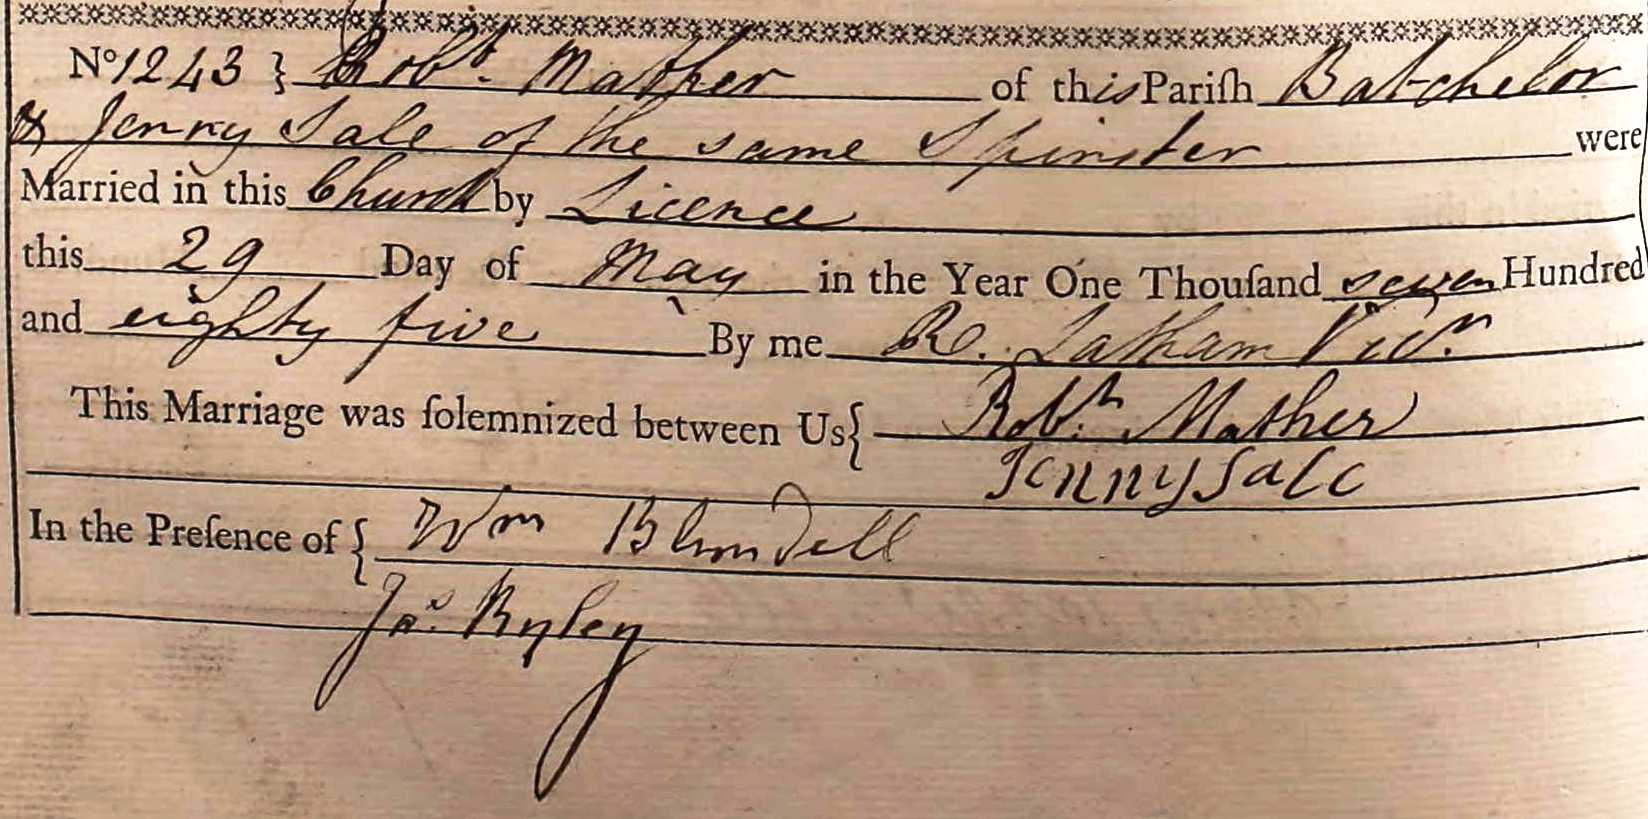 No 1243 } Robt. Mather of this Pariſh Batchelor
& Jenny Sale of the same Spinster were
Married in this Church by Licence
this 29 Day of May in the Year One Thouſand seven Hundred
and eighty five By me R. Latham Vicr.
This Marriage was ſolemnized between Us { Robt. Mather
Jenny Sale
In the Preſence of { Wm Blundell
Jas. Ryley